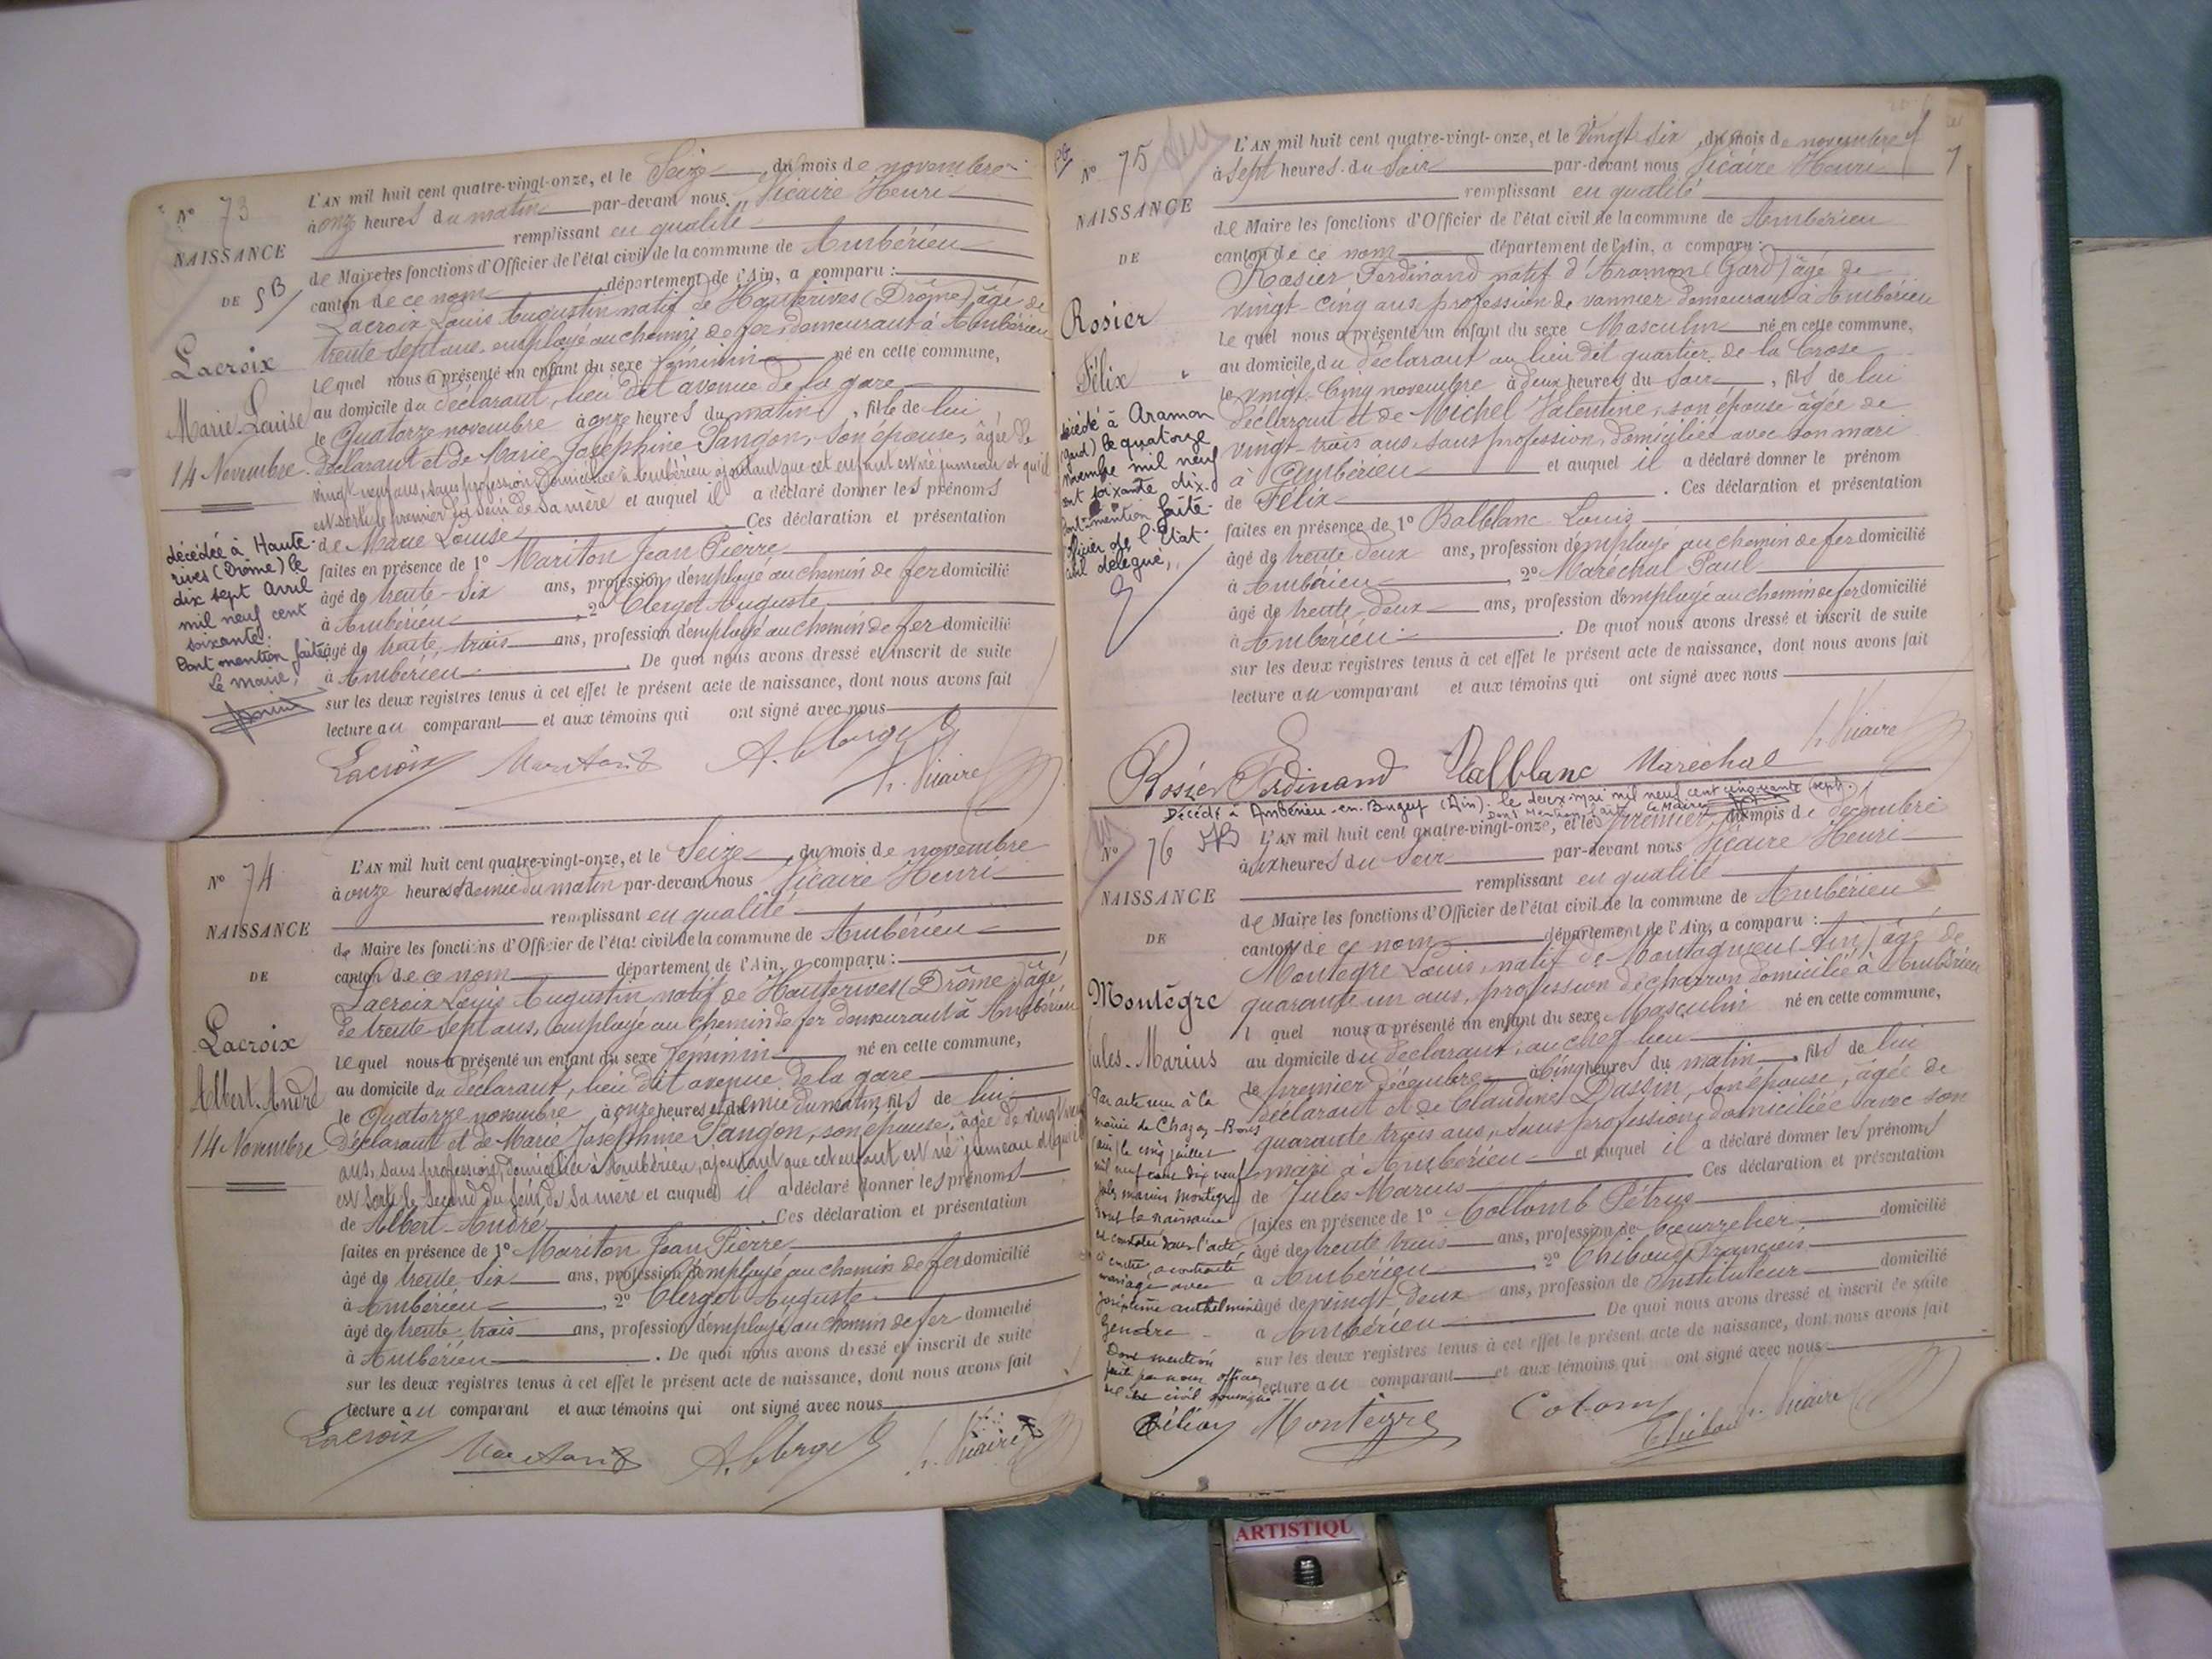 N° 73
NAISSANCE
DE
SB
Lacroix
Marie Louise
14 Novembre
décédée à Haute-
rives (Drôme) le
dix sept Avril
mil neuf cent
soixante.
Dont mention faite
Le maire,
L'AN mil huit cent quatre-vingt-onze, et le Seize, du mois de novembre
à onze heures du matin par-devant nous Vicaire Henri
remplissant en qualité
de Maire les fonctions d'Officier de l'état civil de la commune de Ambérieu
canton de ce nom département de l'Ain, a comparu :
Lacroix Louis Augustin natif de Hauterives (Drôme) âgé de
trente sept ans, employé au chemin de fer, demeurant à Ambérieu
lequel nous a présenté un enfant du sexe féminin né en cette commune,
au domicile du déclarant, lieu dit avenue de la gare
le Quatorze novembre à onze heures du matin, fille de lui
déclarant et de Marie Joséphine Pangon, son épouse, âgée de
vingt neuf ans, sans profession, domiciliée à Ambérieu ajoutant que cet enfant est né jumeau et qu'il
est sorti le premier du sein de sa mère et auquel il a déclaré donner les prénoms
de Marie Louise Ces déclaration et présentation
faites en présence de 1° Mariton Jean Pierre
âgé de trente-six ans, profession d'employé au chemin de fer domicilié
à Ambérieu, 2° Clerget Auguste
âgé de trente, trois ans, profession d'employé au chemin de fer domicilié
à Ambérieu. De quoi nous avons dressé et inscrit de suite
sur les deux registres tenus à cet effet le présent acte de naissance, dont nous avons fait
lecture au comparant et aux témoins qui ont signé avec nous
Lacroix Mariton A. Clerget
h. Vicaire
N° 74
NAISSANCE
DE
Lacroix
Albert-André
14 Novembre
L'AN mil huit cent quatre-vingt-onze, et le Seize, du mois de novembre
à onze heures et demie du matin par-devant nous Vicaire Henri
remplissant en qualité
de Maire les fonctions d'Officier de l'état civil de la commune de Ambérieu
canton de ce nom département de l'Ain, a comparu :
Lacroix Louis Augustin natif de Hauterives (Drôme) âgé
de trente sept ans, employé au chemin de fer demeurant à Ambérieu
lequel nous a présenté un enfant du sexe féminin né en cette commune,
au domicile du déclarant, lieu dit avenue de la gare
le Quatorze novembre à onze heures et demie du matin, fils de lui
déclarant et de Marie Joséphine Pangon, son épouse, âgée de vingt neuf
ans, sans profession, domiciliée à Ambérieu, ajoutant que cet enfant est né jumeau et qu'il
est sorti le second du sein de sa mère et auquel il a déclaré donner les prénoms
de Albert-André. Ces déclaration et présentation
faites en présence de 1° Mariton Jean Pierre
âgé de trente six ans, profession d'employé au chemin de fer domicilié
à Ambérieu, 2° Clerget Auguste
âgé de trente, trois ans, profession d'employé au chemin de fer domicilié
à Ambérieu. De quoi nous avons dressé et inscrit de suite
sur les deux registres tenus à cet effet le présent acte de naissance, dont nous avons fait
lecture au comparant et aux témoins qui ont signé avec nous
Lacroix Mariton A. Clerget h. Vicaire
N° 75
NAISSANCE
DE
Rosier
Félix
décédé à Aramon
(Gard) le quatorze
novembre mil neuf
cent soixante dix.
Dont mention faite
Officier de l'Etat-
civil délégué,
L'AN mil huit cent quatre-vingt-onze, et le Vingt six, du mois de novembre
à sept heures du soir par-devant nous Vicaire Henri
remplissant en qualité
de Maire les fonctions d'Officier de l'état civil de la commune de Ambérieu
canton de ce nom département de l'Ain, a comparu :
Rosier Ferdinand natif d'Aramon (Gard) âgé de
vingt-cinq ans profession de vannier demeurant à Ambérieu
Le quel nous a présenté un enfant du sexe Masculin né en cette commune,
au domicile du déclarant au lieu dit quartier de la Croze
le vingt-cinq novembre à deux heures du soir, fils de lui
déclarant et de Michel Valentine, son épouse âgée de
vingt-trois ans, sans profession, domiciliée avec son mari
à Ambérieu et auquel il a déclaré donner le prénom
de Félix. Ces déclaration et présentation
faites en présence de 1° Balblanc Louis
âgé de trente deux ans, profession d'employé au chemin de fer domicilié
à Ambérieu, 2° Maréchal Paul
âgé de trente-deux ans, profession d'employé au chemin de fer domicilié
à Ambérieu. De quoi nous avons dressé et inscrit de suite
sur les deux registres tenus à cet effet le présent acte de naissance, dont nous avons fait
lecture au comparant et aux témoins qui ont signé avec nous
h. Vicaire
Rosier Ferdinand Balblanc Maréchal
Décédé à Ambérieu-en-Bugey (Ain) le deux mai mil neuf cent cinquante sept.
Dont Mention faite. Le Maire
N° 76
NAISSANCE
DE
Montègre
Jules-Marius
Par acte reçu à la
mairie de Chazey-Bons
(Ain) le cinq juillet
mil neuf cent dix neuf
Jules Marius Montegre
dont la naissance
est constatée dans l'acte
ci contre, a contracté
mariage avec
Joséphine Anthelmine
Gendre
Dont mention
faite par nous officier
de l'état civil soussigné
L'AN mil huit cent quatre-vingt-onze, et le premier, du mois de décembre
à six heures du soir par-devant nous Vicaire Henri
remplissant en qualité
de Maire les fonctions d'Officier de l'état civil de la commune de Ambérieu
canton de ce nom département de l'Ain, a comparu :
Montègre Louis, natif de Montagnieu (Ain) âgé de
quarante un ans, profession de charron domicilié à Ambérieu
l quel nous a présenté un enfant du sexe Masculin né en cette commune,
au domicile du déclarant, au chef lieu
le premier décembre à cinq heures du matin, fils de lui
déclarant et de Claudine Dassin, son épouse, âgée de
quarante trois ans, sans profession, domiciliée avec son
mari à Ambérieu et auquel il a déclaré donner les prénoms
de Jules Marius Ces déclaration et présentation
faites en présence de 1° Collomb Pétrus
âgé de trente trois ans, profession de bourrelier domicilié
à Ambérieu, 2° Thiboud François
âgé de vingt deux ans, profession de Instituteur domicilié
à Ambérieu. De quoi nous avons dressé et inscrit de suite
sur les deux registres tenus à cet effet le présent acte de naissance, dont nous avons fait
lecture au comparant et aux témoins qui ont signé avec nous
Montègre Colomb Thiboud h. Vicaire
ARTISTIQU